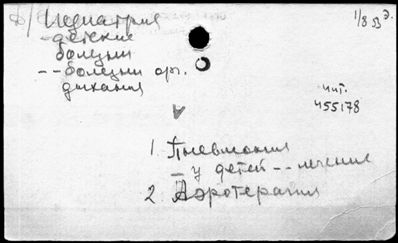 Б/ Педиатрия
- детские
болезни
-- болезни орг.
дыхания
1/8 53 г.
чит.
455178
V
1. Пневмония
— у детей -- лечение
2. Аэротерапия